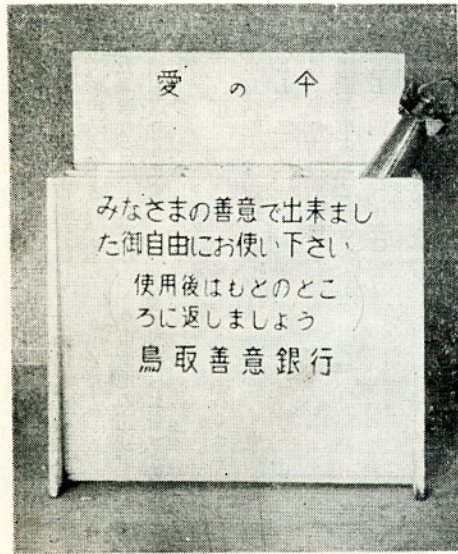 愛の仐
みなさまの善意で出来まし
た御自由にお使い下さい
使用後はもとのとこ
ろに返しましょう
鳥取善意銀行